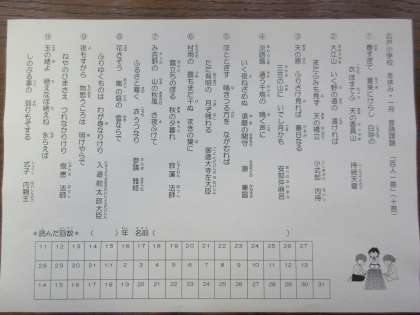 小学校 冬休み・一月 暗唱課題 「百人一首」(十首)
① 春過ぎて 夏来にけらし 白妙の
衣ほすてふ 天の香具山 持統天皇
② 大江山 いく野の道の 遠ければ
まだふみも見ず 天の橋立 小式部 内侍
③ 天の原 ふりさけ見れば 春日なる
三笠の山に いでし月かも 安倍仲麿
④ 淡路島 通う千鳥の 鳴く声に
いく夜ねざめぬ 須磨の関守 源 兼昌
⑤ ほととぎす 鳴きつる方を ながむれば
ただ有明の 月ぞ残れる 後徳大寺左大臣
⑥ 村雨の 露もまだ干ぬ まきの葉に
霧立ちのぼる 秋の夕暮れ 寂蓮 法師
⑦ み吉野の 山の秋風 さ夜ふけて
ふるさと寒く 衣うつなり 参議 雅経
⑧ 花さそう 嵐の庭の 雪ならで
ふりゆくものは わが身なりけり 入道前太政大臣
⑨ 夜もすがら 物思うころは 明けやらで
ねやのひまさえ つれなかりけり 俊恵 法師
⑩ 玉の緒よ 絶えなば絶えね 永らえば
しのぶる事の 弱りもぞする 式子 内親王
*読んだ回数* ( )年 名前( )
11 12 13 14 15 16 17 18 19 20 21 22 23 24 25 26 27
28 29 30 31 1/1 2 3 4 5 6 7 8 9 10 11 12 13